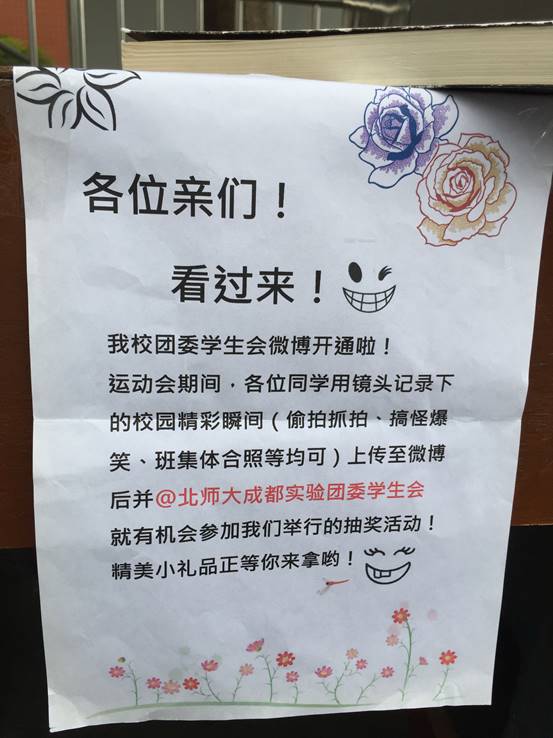 各位亲们！
看过来！
我校团委学生会微博开通啦！
运动会期间，各位同学用镜头记录下
的校园精彩瞬间（偷拍抓拍、搞怪爆
笑、班集体合照等均可）上传至微博
后并@北师大成都实验团委学生会
就有机会参加我们举行的抽奖活动！
精美小礼品正等你来拿哟！